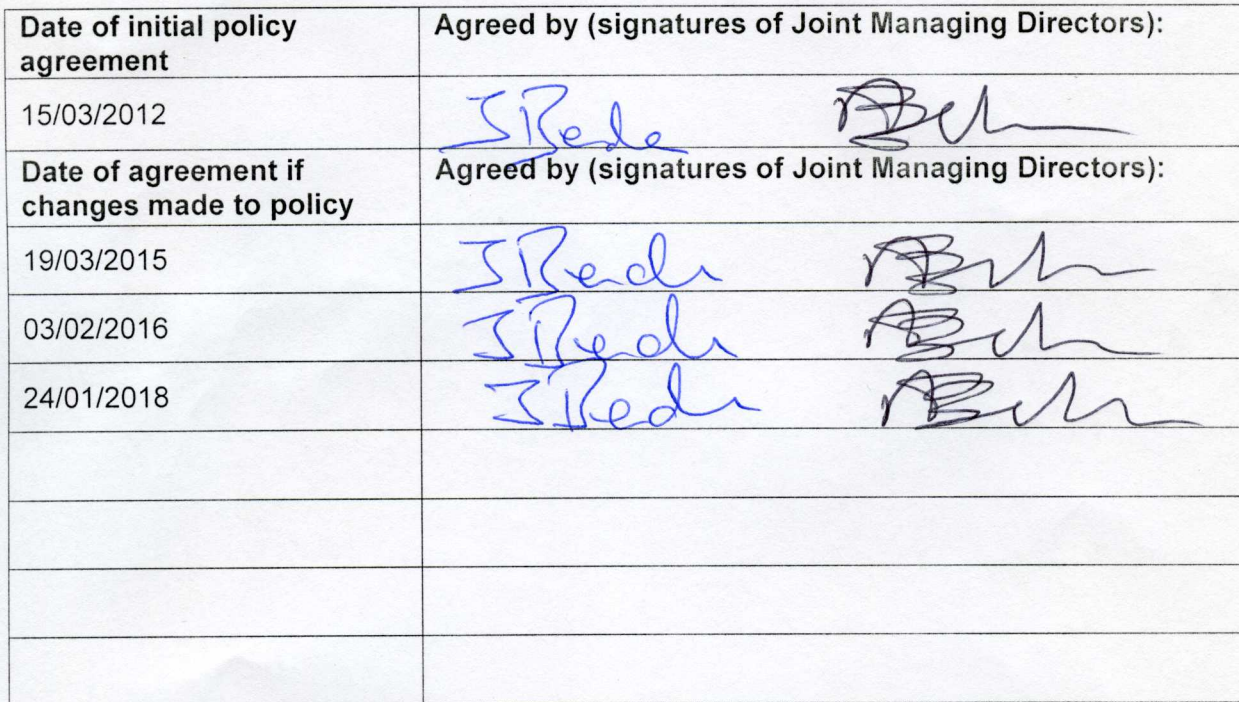 Date of initial policy
agreement
Agreed by (signatures of Joint Managing Directors):
15/03/2012
Date of agreement if
changes made to policy
Agreed by (signatures of Joint Managing Directors):
19/03/2015
03/02/2016
24/01/2018